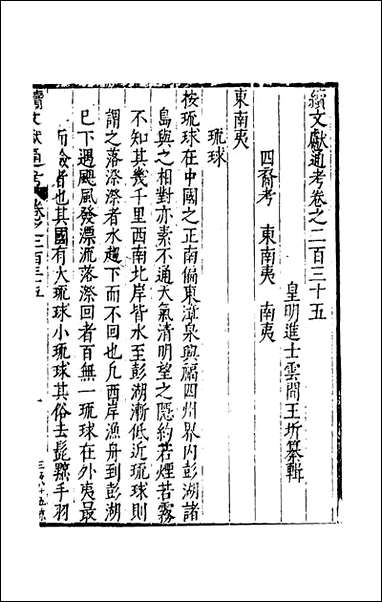 續文獻通考卷之二百三十五
皇明進士雲間王圻纂輯
四裔考 東南夷 南夷
東南夷
琉球
按琉球在中國之正南偏東漳泉與福四州界內彭湖諸
島與之相對亦素不通天氣清明望之隱約若煙若霧
不知其幾千里西南北岸皆水至彭湖漸低近琉球則
謂之落漈漈者水趨下而不回也凢西岸漁舟到彭湖
已下遇颶風發漂流落漈回者百無一琉球在外夷最
而險者也其國有大琉球小琉球其俗去髭黥手羽
續文獻通考 卷之二百三十五 一